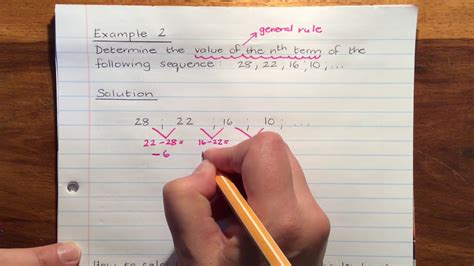 general rule
Example 2
Determine the value of the nth term of the
following sequence : 28 ; 22 ; 16 ; 10 ; ...
Solution
28 ; 22 ; 16 ; 10 ; ...
22 - 28 = 16 - 22 =
- 6